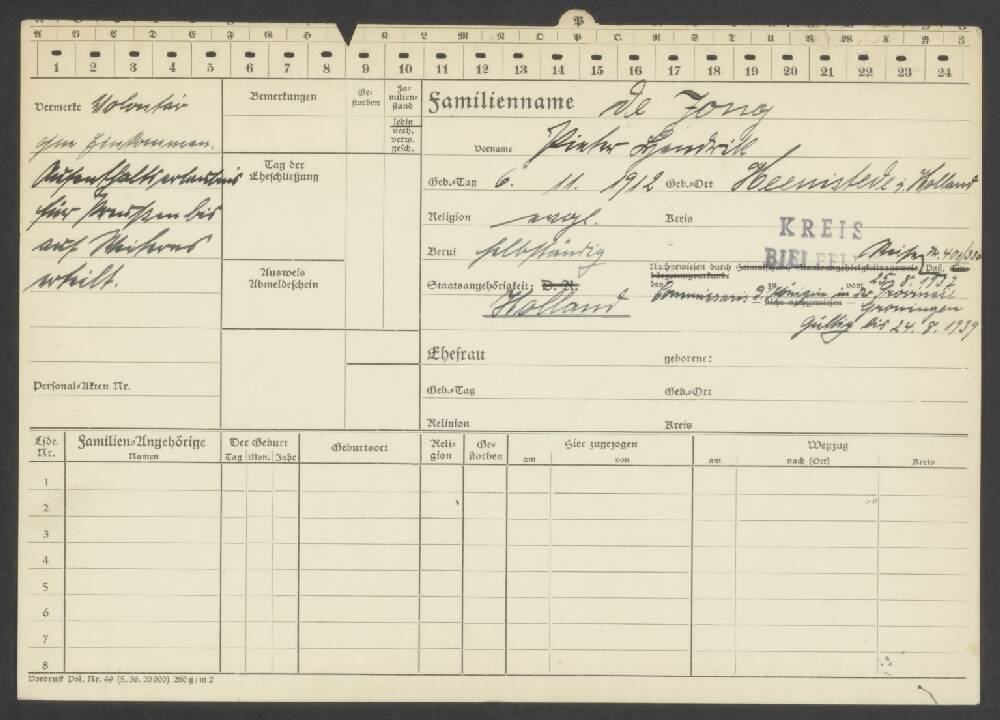 P
A B C D E F G H K L M N O P Q R S T U V W X Y Z
1 2 3 4 5 6 7 8 9 10 11 12 13 14 15 16 17 18 19 20 21 22 23 24
Vermerke Volontär
ohne Einkommen.
Aufenthaltserlaubnis
für Preußen bis
auf Weiteres
erteilt.
Personal-Akten Nr.
Bemerkungen
Tag der
Eheschließung
Ausweis
Abmeldeschein
Ge-
storben
Fa-
milien-
stand
ledig
verh.
verw.
gesch.
Familienname De Jong
Vorname Pieter Hendrik
Geb.-Tag 6. 11. 1912 Geb.-Ort Heemstede i. Holland
Religion evgl. Kreis
KREIS
BIELEFELD
Beruf selbständig
Nachgewiesen durch Heimatschein Staatsangehörigkeitsausweis Paß,
Staatsangehörigkeit: D. R. des zu vom 25. 8. 1937
Holland Commissaris d. Königin in de Provincie
nicht nachgewiesen Groningen
Gültig bis 24. 8. 1939
Ehefrau geborene:
Geb.-Tag Geb.-Ort
Religion Kreis
Lfde. Nr. Familien-Angehörige Namen Der Geburt Tag Mon. Jahr Geburtsort Reli-gion Ge-storben Hier zugezogen am von Wegzug am nach (Ort) Kreis
1
2
3
4
5
6
7
8
Vordruck Pol. Nr. 49 (5. 36. 20000) 280 g/m 2